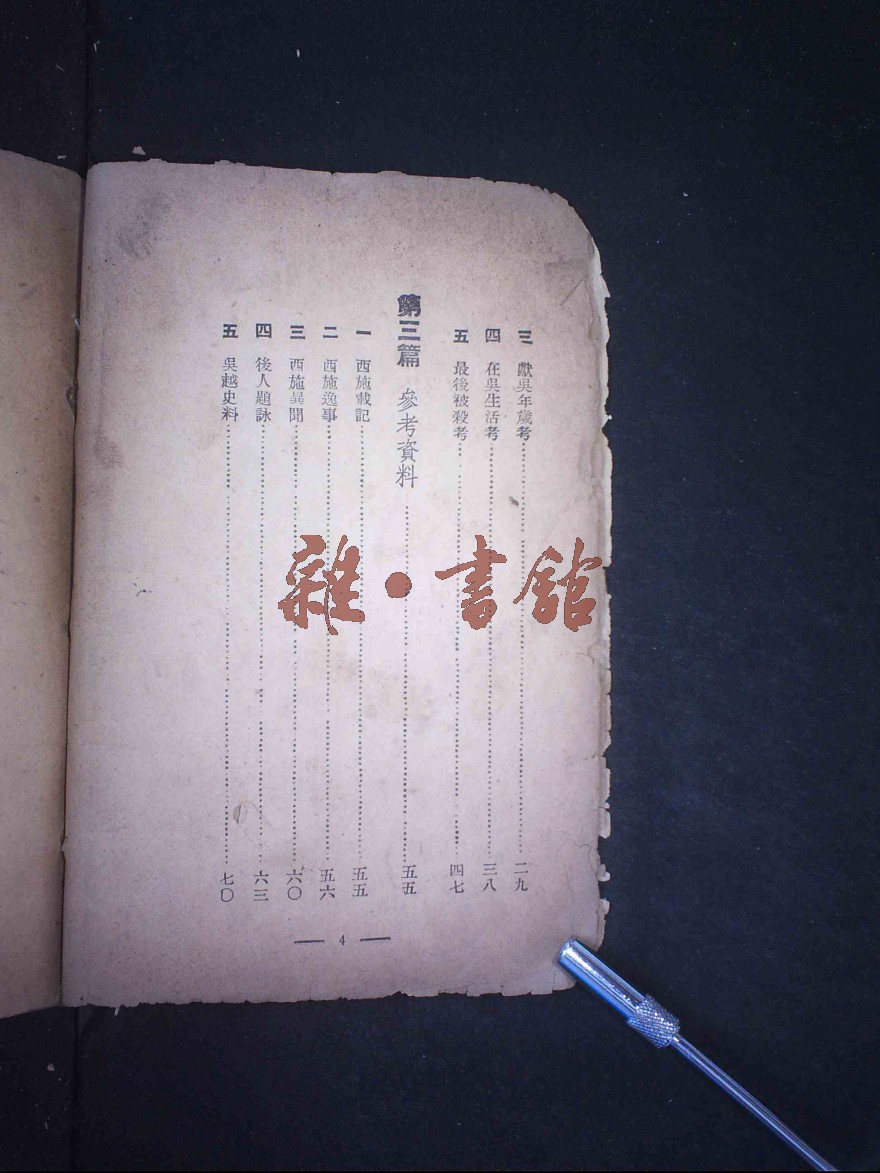 三 獻吳年歲考……二九
四 在吳生活考……三八
五 最後被殺考……四七
第三篇 參考資料……五五
一 西施載記……五五
二 西施逸事……五六
三 西施異聞……六〇
四 後人題詠……六三
五 吳越史料……七〇
— 4 —
雜·書館